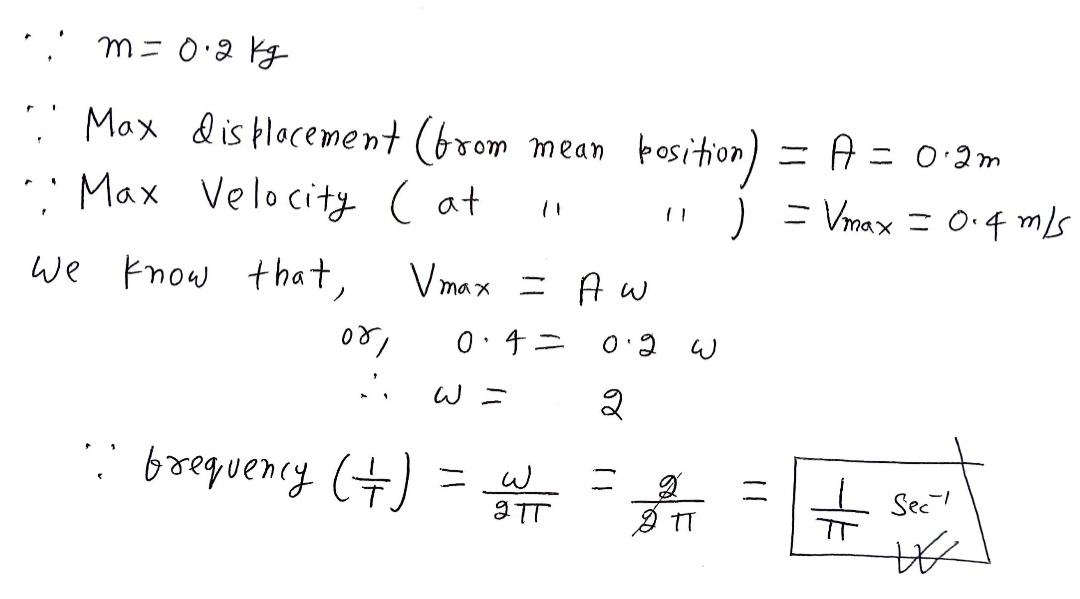 ∵ m = 0.2 kg
∵ Max displacement (from mean position) = A = 0.2m
∵ Max Velocity ( at " " ) = Vmax = 0.4 m/s
We know that, Vmax = A ω
or, 0.4 = 0.2 ω
∴ ω = 2
∵ frequency (1/T) = ω/2π = 2/2π = 1/π Sec⁻¹